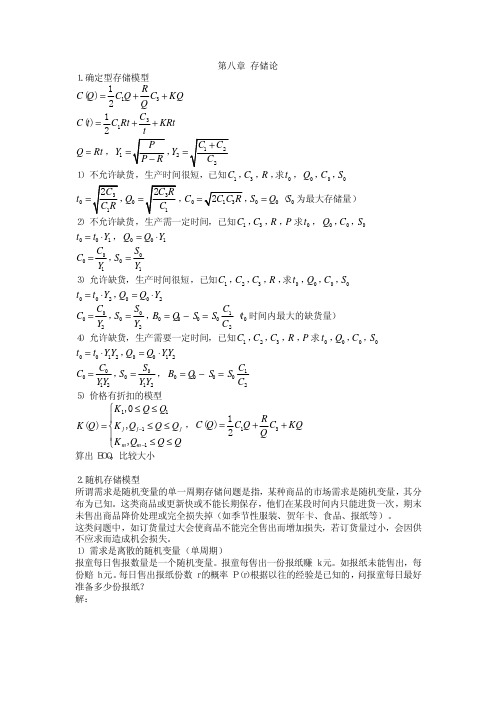 第八章 存储论
1.确定型存储模型
C(Q) = 1/2 C₁Q + R/Q C₃ + KQ
C(t) = 1/2 C₁Rt + C₃/t + KRt
Q = Rt，Y₁ = √(P/(P−R))，Y₂ = √((C₁+C₂)/C₂)
1）不允许缺货，生产时间很短，已知C₁，C₃，R，求t₀，Q₀，C₀，S₀
t₀ = √(2C₃/(C₁R))，Q₀ = √(2C₃R/C₁)，C₀ = √(2C₁C₃R)，S₀ = Q₀（S₀为最大存储量）
2）不允许缺货，生产需一定时间，已知C₁，C₃，R，P求t₀，Q₀，C₀，S₀
t₀ = t₀·Y₁，Q₀ = Q₀·Y₁
C₀ = C₀/Y₁，S₀ = S₀/Y₁
3）允许缺货，生产时间很短，已知C₁，C₂，C₃，R，求t₀，Q₀，C₀，S₀
t₀ = t₀·Y₂，Q₀ = Q₀·Y₂
C₀ = C₀/Y₂，S₀ = S₀/Y₂，B₀ = Q₀ − S₀ = S₀ C₁/C₂（t₀时间内最大的缺货量）
4）允许缺货，生产需要一定时间，已知C₁，C₂，C₃，R，P求t₀，Q₀，C₀，S₀
t₀ = t₀·Y₁Y₂，Q₀ = Q₀·Y₁Y₂
C₀ = C₀/Y₁Y₂，S₀ = S₀/Y₁Y₂，B₀ = Q₀ − S₀ = S₀ C₁/C₂
5）价格有折扣的模型
K(Q) = { K₁, 0 ≤ Q ≤ Q₁
Kⱼ, Qⱼ₋₁ ≤ Q ≤ Qⱼ ，C(Q) = 1/2 C₁Q + R/Q C₃ + KQ
Kₘ, Qₘ₋₁ ≤ Q ≤ Q
算出EOQ，比较大小
2.随机存储模型
所谓需求是随机变量的单一周期存储问题是指，某种商品的市场需求是随机变量，其分
布为已知。这类商品或更新快或不能长期保存，他们在某段时间内只能进货一次，期末
未售出商品降价处理或完全损失掉（如季节性服装、贺年卡、食品、报纸等）。
这类问题中，如订货量过大会使商品不能完全售出而增加损失，若订货量过小，会因供
不应求而造成机会损失。
1）需求是离散的随机变量（单周期）
报童每日售报数量是一个随机变量。报童每售出一份报纸赚 k元。如报纸未能售出，每
份赔 h元。每日售出报纸份数 r的概率 P(r)根据以往的经验是已知的，问报童每日最好
准备多少份报纸？
解：